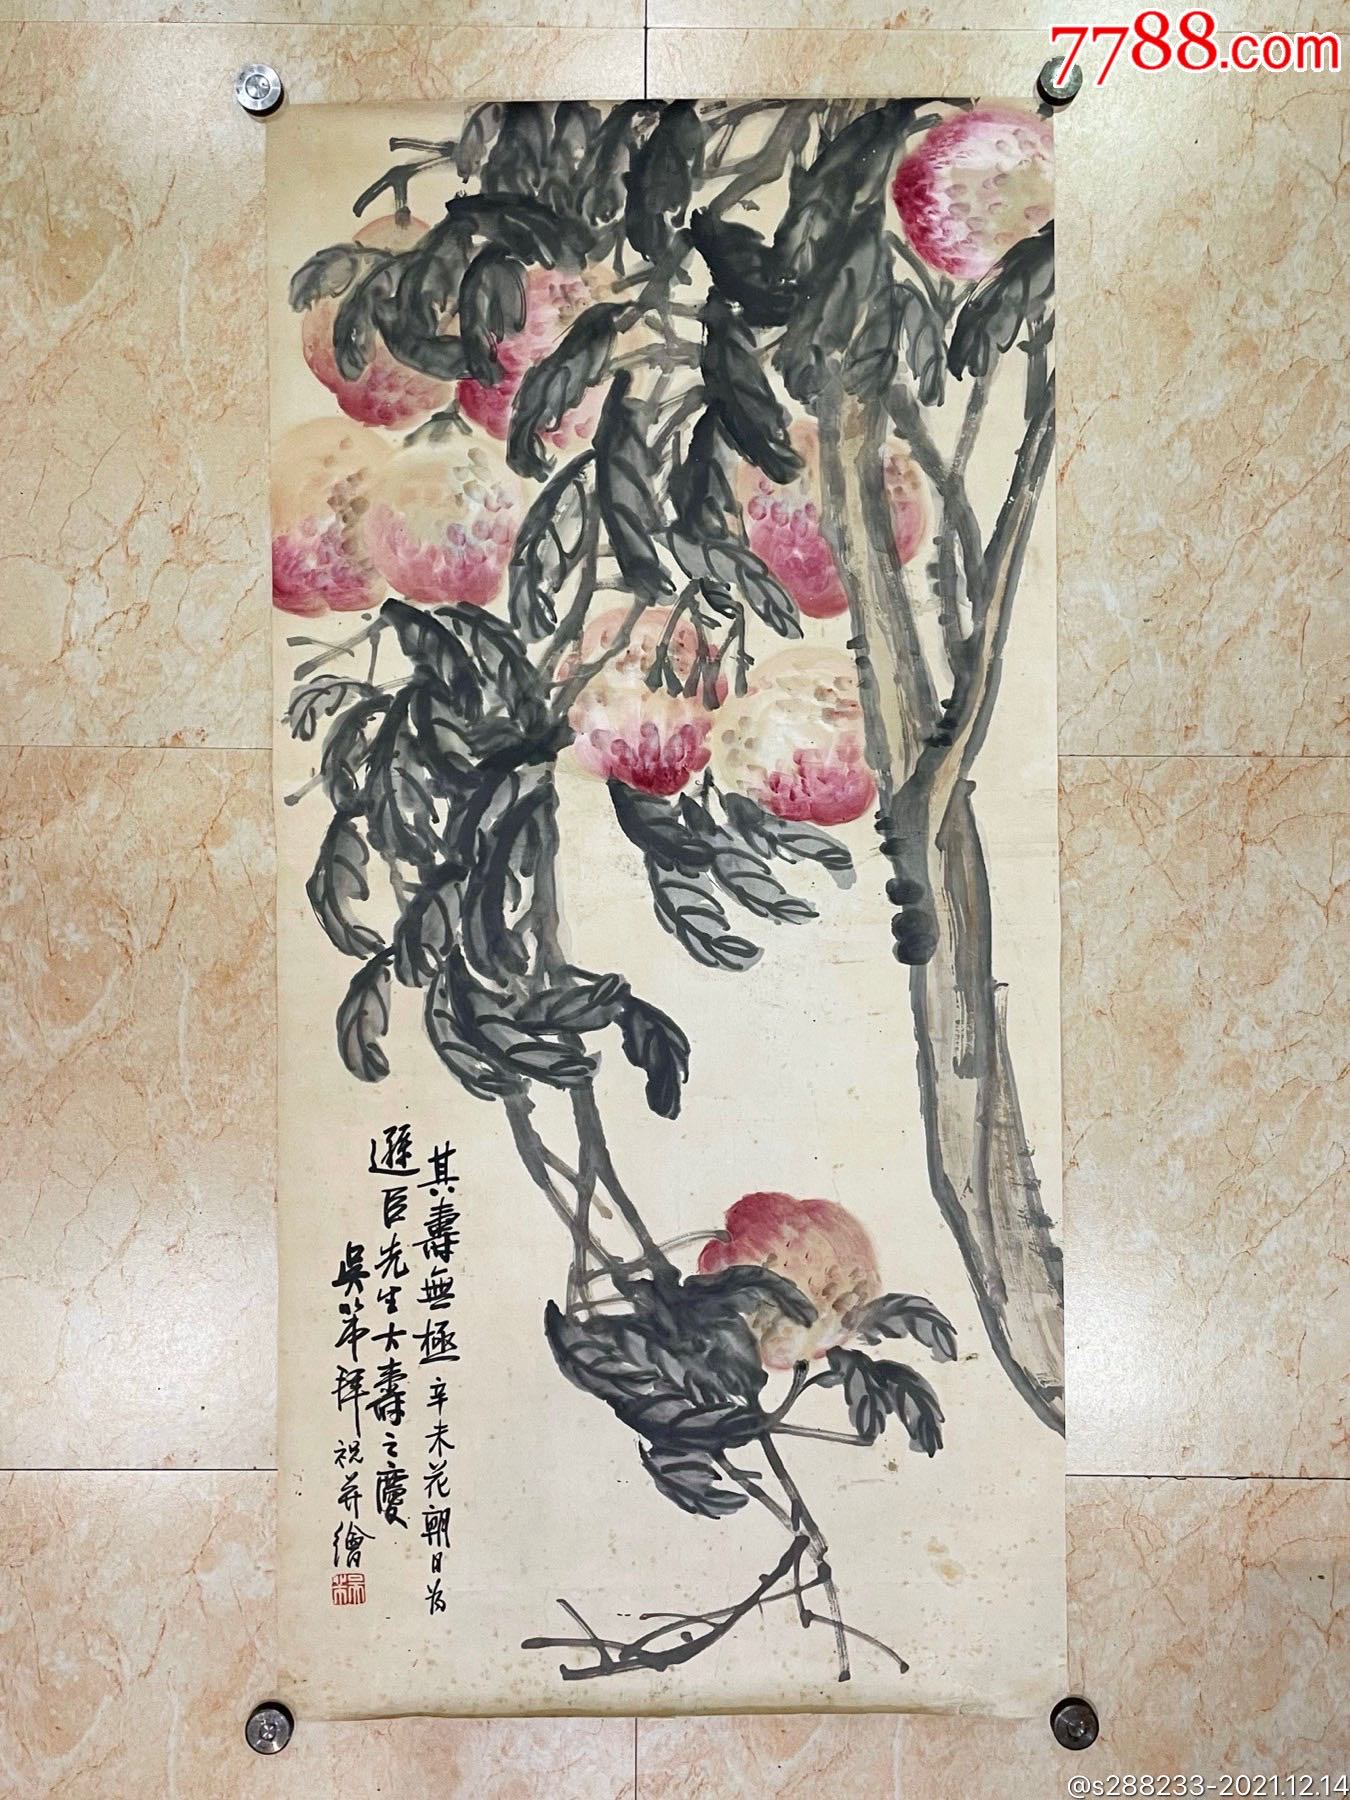 7788.com
其壽無極 辛未花朝日為
遜臣先生大壽之慶
吳第拜祝并繪
@s288233-2021.12.14